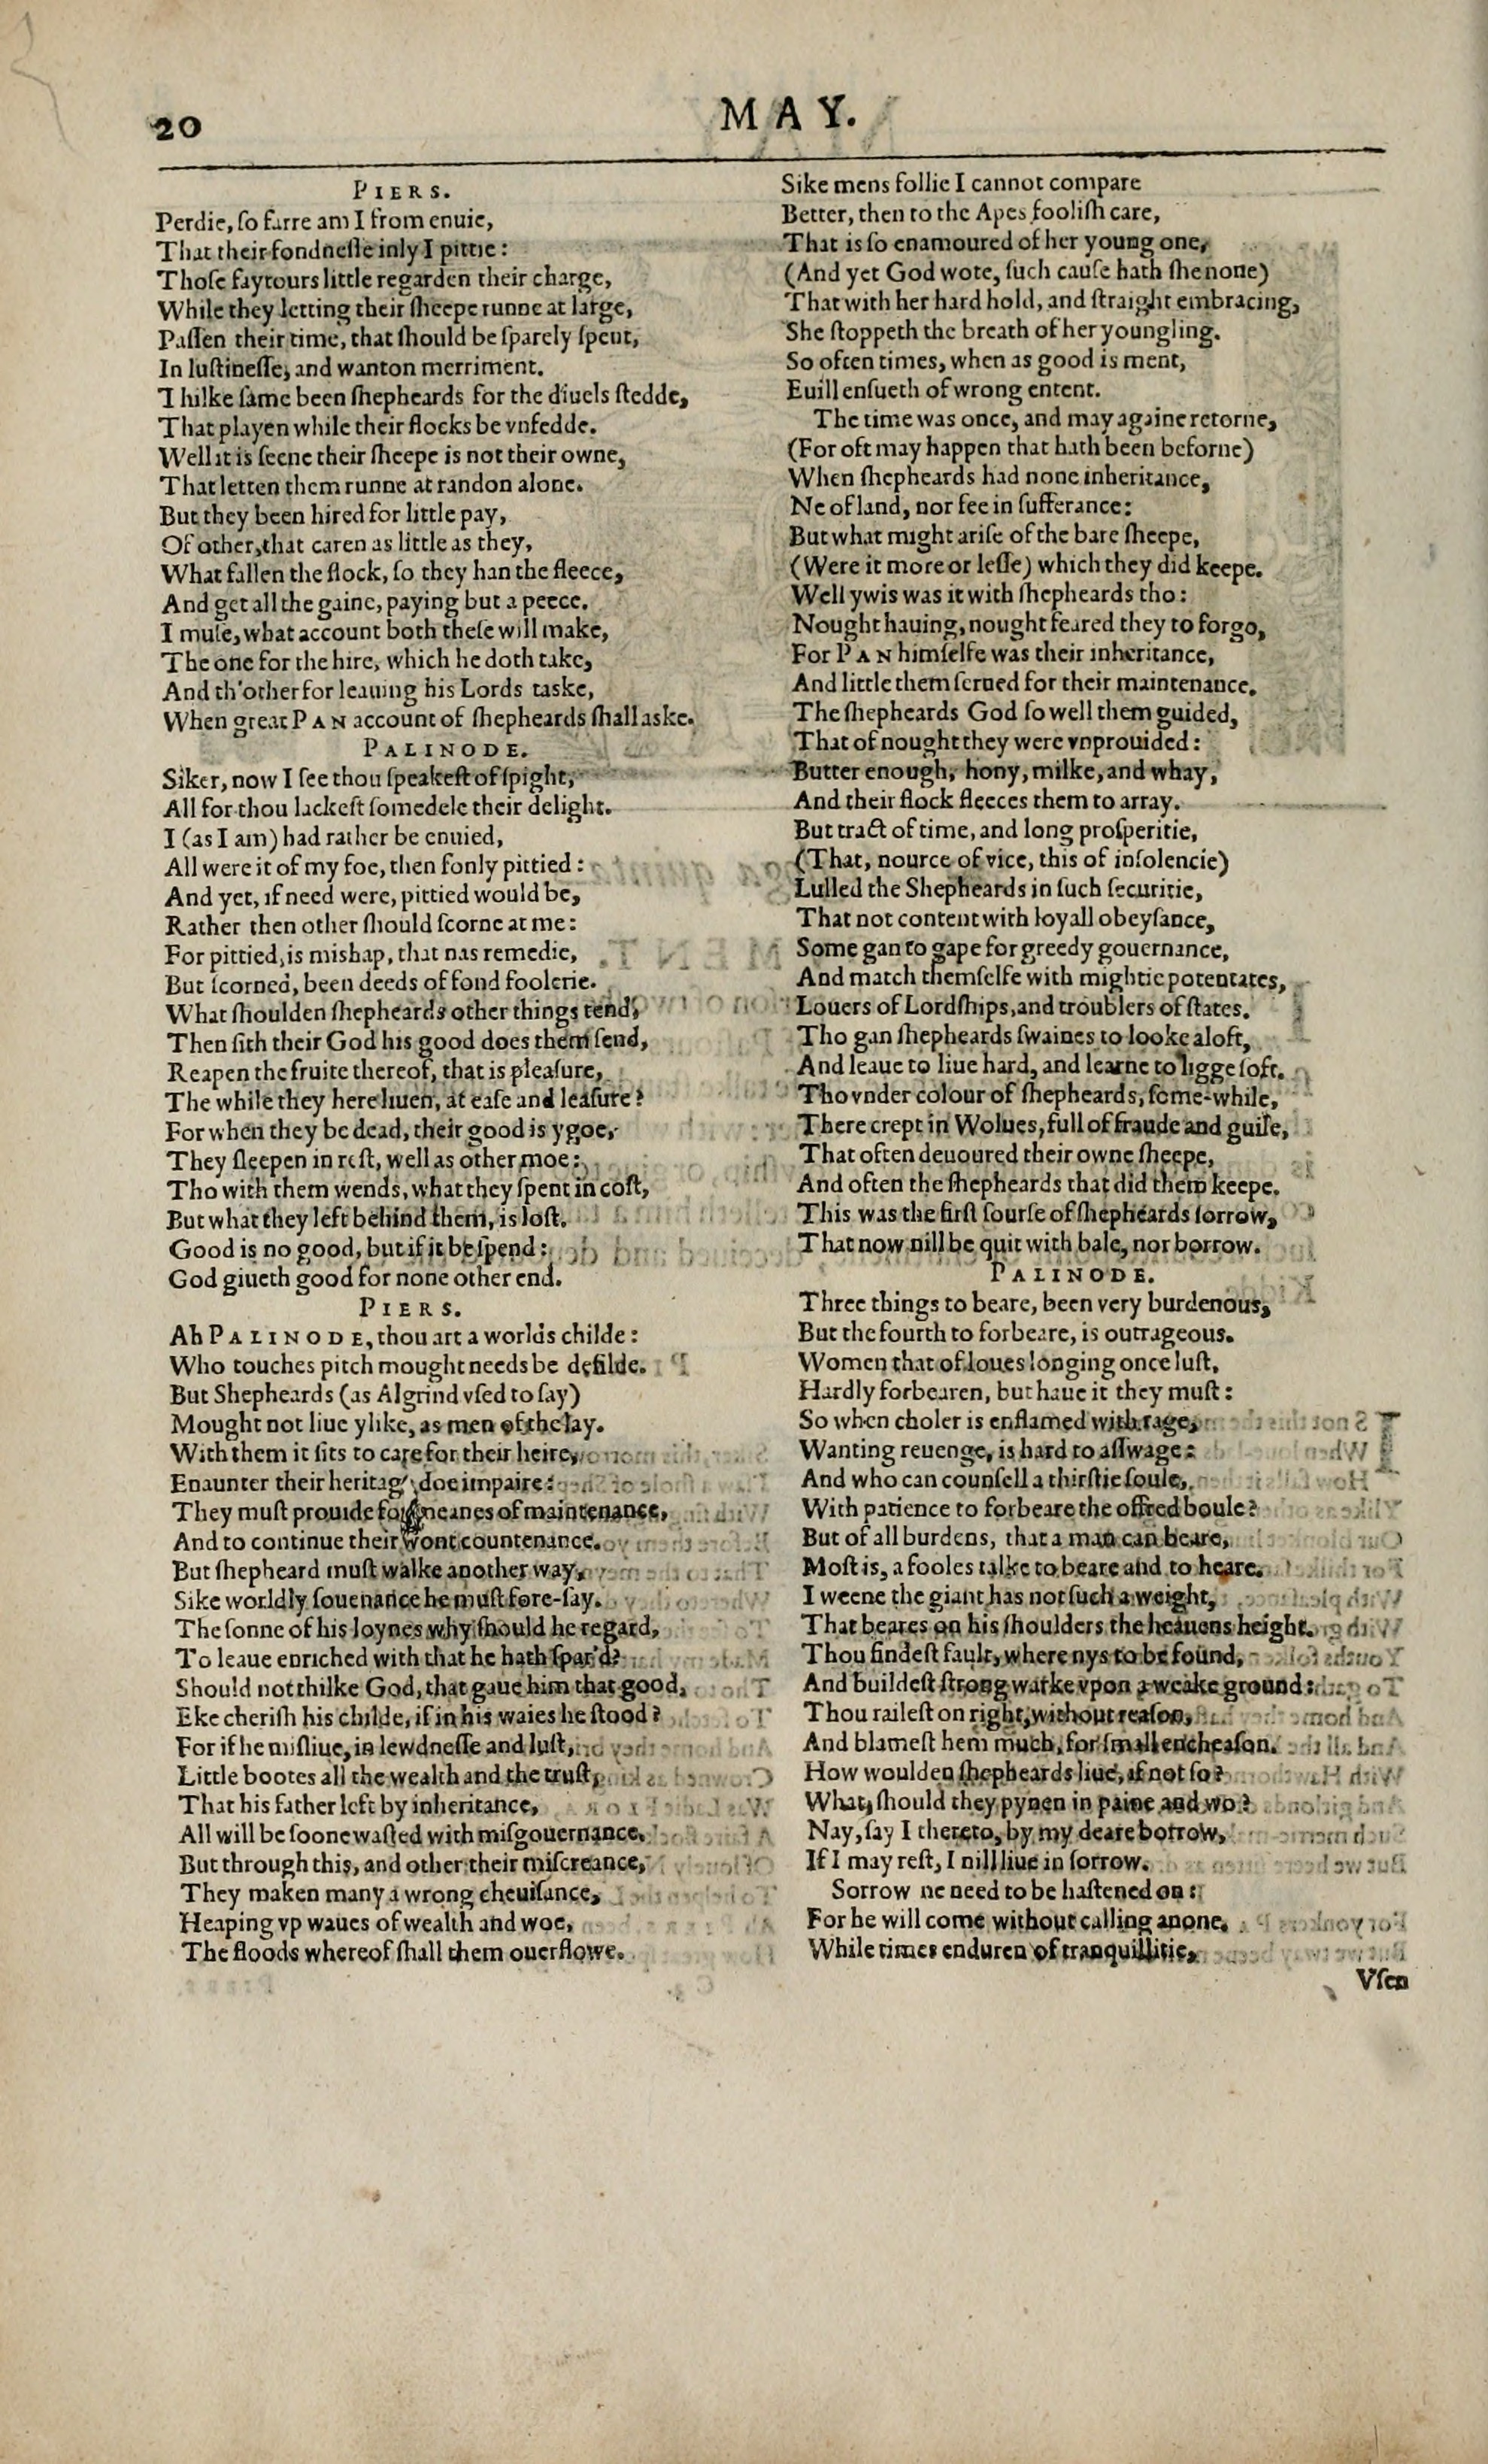 20
MAY.
PIERS.
Perdie, ſo farre am I from enuie,
That their fondneſſe inly I pittie:
Thoſe faytours little regarden their charge,
While they letting their ſheepe runne at large,
Paſſen their time, that ſhould be ſparely ſpent,
In luſtineſſe, and wanton merriment.
Thilke ſame been ſhepheards for the diuels ſtedde,
That playen while their flocks be vnfedde.
Well it is ſeene their ſheepe is not their owne,
That letten them runne at randon alone.
But they been hired for little pay,
Of other, that caren as little as they,
What fallen the flock, ſo they han the fleece,
And get all the gaine, paying but a peece.
I muſe, what account both theſe will make,
The one for the hire, which he doth take,
And th'other for leauing his Lords taske,
When great PAN account of ſhepheards ſhall aske.
PALINODE.
Siker, now I ſee thou ſpeakeſt of ſpight,
All for thou lackeſt ſomedele their delight.
I (as I am) had rather be enuied,
All were it of my foe, then fonly pittied:
And yet, if need were, pittied would be,
Rather then other ſhould ſcorne at me:
For pittied, is mishap, that nas remedie,
But ſcorned, been deeds of fond foolerie.
What ſhoulden ſhepheards other things tend,
Then ſith their God his good does them ſend,
Reapen the fruite thereof, that is pleaſure,
The while they here liuen, at eaſe and leaſure?
For when they be dead, their good is ygoe,
They ſleepen in reſt, well as other moe:
Tho with them wends, what they ſpent in coſt,
But what they left behind them, is loſt.
Good is no good, but if it be ſpend:
God giueth good for none other end.
PIERS.
Ah PALINODE, thou art a worlds childe:
Who touches pitch mought needs be defilde.
But Shepheards (as Algrind vſed to ſay)
Mought not liue ylike, as men of the lay.
With them it ſits to care for their heire,
Enaunter their heritage doe impaire:
They muſt prouide for meanes of maintenance,
And to continue their wont countenance.
But ſhepheard muſt walke another way,
Sike worldly ſouenance he muſt fore-ſay.
The ſonne of his loynes why ſhould he regard,
To leaue enriched with that he hath ſpar'd?
Should not thilke God, that gaue him that good,
Eke cheriſh his childe, if in his waies he ſtood?
For if he miſliue, in lewdneſſe and luſt,
Little bootes all the wealth and the truſt,
That his father left by inheritance,
All will be ſoone waſted with miſgouernance.
But through this, and other their miſcreance,
They maken many a wrong cheuiſance,
Heaping vp waues of wealth and woe,
The floods whereof ſhall them ouerflowe.
Sike mens follie I cannot compare
Better, then to the Apes fooliſh care,
That is ſo enamoured of her young one,
(And yet God wote, ſuch cauſe hath ſhe none)
That with her hard hold, and ſtraight embracing,
She ſtoppeth the breath of her youngling.
So often times, when as good is ment,
Euill enſueth of wrong entent.
The time was once, and may againe retorne,
(For oft may happen that hath been beforne)
When ſhepheards had none inheritance,
Ne of land, nor fee in ſufferance:
But what might ariſe of the bare ſheepe,
(Were it more or leſſe) which they did keepe.
Well ywis was it with ſhepheards tho:
Nought hauing, nought feared they to forgo,
For PAN himſelfe was their inheritance,
And little them ſerued for their maintenance.
The ſhepheards God ſo well them guided,
That of nought they were vnprouided:
Butter enough, hony, milke, and whay,
And their flock fleeces them to array.
But tract of time, and long proſperitie,
(That, nource of vice, this of inſolencie)
Lulled the Shepheards in ſuch ſecuritie,
That not content with loyall obeyſance,
Some gan to gape for greedy gouernance,
And match themſelfe with mightie potentates,
Louers of Lordſhips, and troublers of ſtates.
Tho gan ſhepheards ſwaines to looke aloft,
And leaue to liue hard, and learne to ligge ſoft.
Tho vnder colour of ſhepheards, ſome-while,
There crept in Wolues, full of fraude and guile,
That often deuoured their owne ſheepe,
And often the ſhepheards that did them keepe.
This was the firſt ſourſe of ſhepheards ſorrow,
That now nill be quit with bale, nor borrow.
PALINODE.
Three things to beare, been very burdenous,
But the fourth to forbeare, is outrageous.
Women that of loues longing once luſt,
Hardly forbearen, but haue it they muſt:
So when choler is enflamed with rage,
Wanting reuenge, is hard to aſſwage:
And who can counſell a thirſtie ſoule,
With patience to forbeare the offred boule?
But of all burdens, that a man can beare,
Moſt is, a fooles talke to beare and to heare.
I weene the giant has not ſuch a weight,
That beares on his ſhoulders the heauens height.
Thou findeſt fault, where nys to be found,
And buildeſt ſtrong warke vpon a weake ground:
Thou raileſt on right, without reaſon,
And blameſt hem much, for ſmall encheaſon.
How woulden ſhepheards liue, if not ſo?
What, ſhould they pynen in paine and wo?
Nay, ſay I thereto, by my deare borrow,
If I may reſt, I nill liue in ſorrow.
Sorrow ne need to be haſtened on:
For he will come without calling anone.
While times enduren of tranquillitie,
Vſen